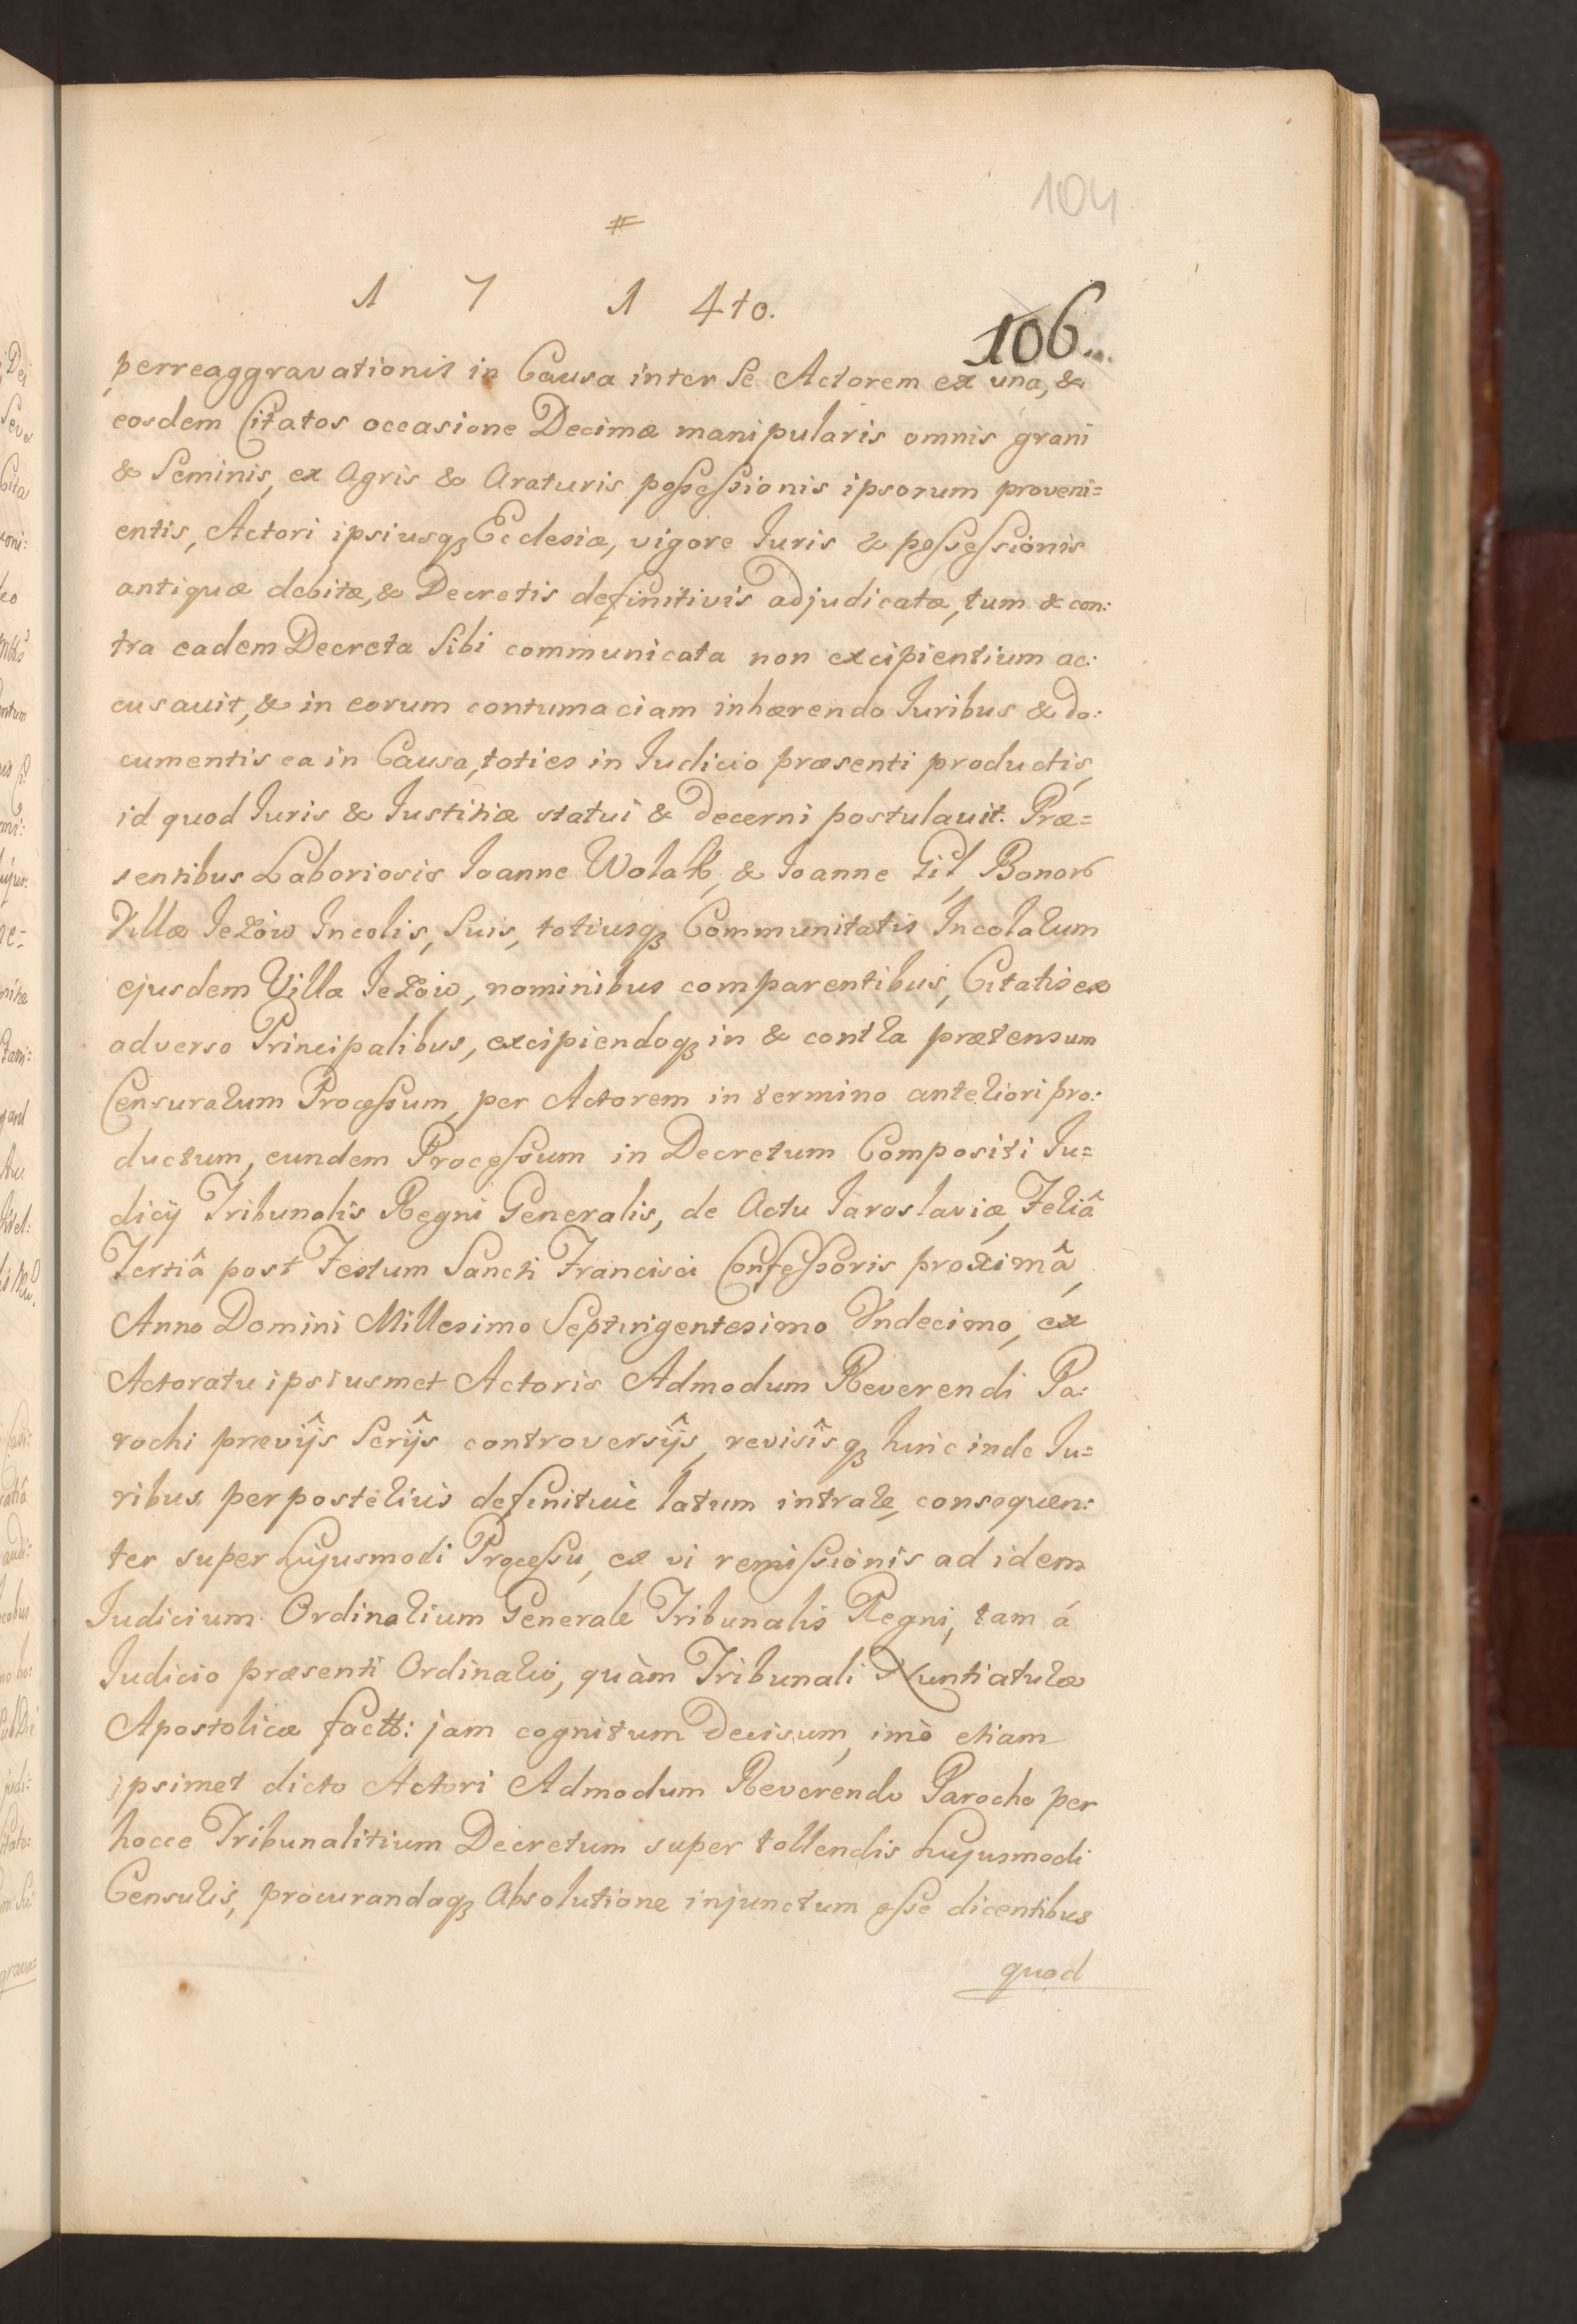 104
#
1 7 1 4to.
106
perreaggravationis in Causa inter Se Actorem ex una, &
eosdem Citatos occasione Decimæ manipularis omnis grani
& Seminis, ex Agris & Araturis possessionis ipsorum proveni=
entis, Actori ipsiusqꝫ Ecclesiæ, vigore Iuris & possessionis
antiquæ debitæ, & Decretis definitivis adjudicatæ, tum & con:
tra eadem Decreta Sibi communicata non excipientium ac:
cusauit, & in eorum contumaciam inhærendo Iuribus & do:
cumentis ea in Causa, toties in Iudicio præsenti productis,
id quod Iuris & Iustitiæ statui & decerni postulauit. Præ=
sentibus Laboriosis Ioanne Wolak, & Ioanne Gil, Bonor
Villæ Ieżów Incolis, Suis, totiusqꝫ Communitatis Incolarum
ejusdem Villæ Ieżów, nominibus comparentibus, Citatis ex
adverso Principalibus, excipiendoqꝫ in & contra prætensum
Censurarum Processum, per Actorem in termino anteriori pro:
ductum, eundem Processum in Decretum Compositi Iu=
dicij Tribunalis Regni Generalis, de Actu Iaroslaviæ, Feriâ
Tertiâ post Festum Sancti Francisci Confessoris proximâ,
Anno Domini Millesimo Septingentesimo Undecimo, ex
Actoratu ipsiusmet Actoris Admodum Reverendi Pa:
rochi prævijs Serijs controversijs, revisisqꝫ hinc inde Iu=
ribus perposterius definitive latum intrare, consequen:
ter super hujusmodi Processu, ex vi remissionis ad idem
Iudicium Ordinarium Generale Tribunalis Regni, tam á
Iudicio præsenti Ordinario, quàm Tribunali Nuntiaturæ
Apostolicæ fact: jam cognitum decisum, imò etiam
ipsimet dicto Actori Admodum Reverendo Parocho per
hocce Tribunalitium Decretum super tollendis hujusmodi
Censuris, procurandaqꝫ Absolutione injunctum esse dicentibus
quod